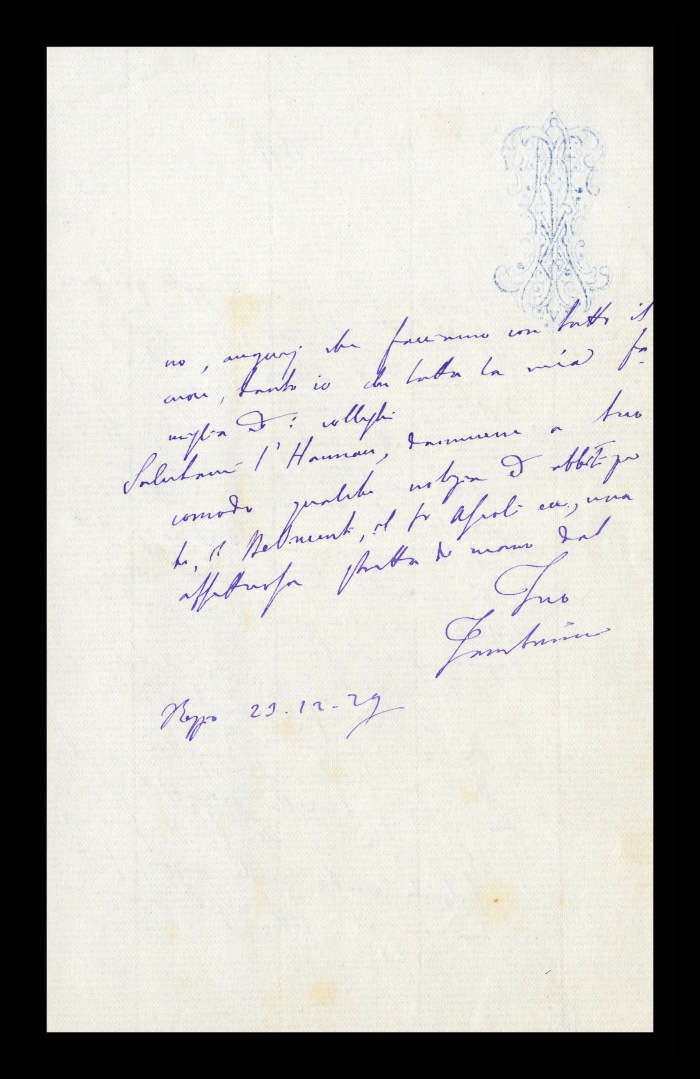 no, augurj che facciamo con tutto il
cuore, tanto io che tutta la mia fa-
miglia ed i colleghi
Salutami l'Hannau, dammene a tuo
comodo qualche notizia ed abbiti
to, il Belmonti, il Ascoli ecc., una
affettuosa stretta di mano dal
Tuo
23-12-29